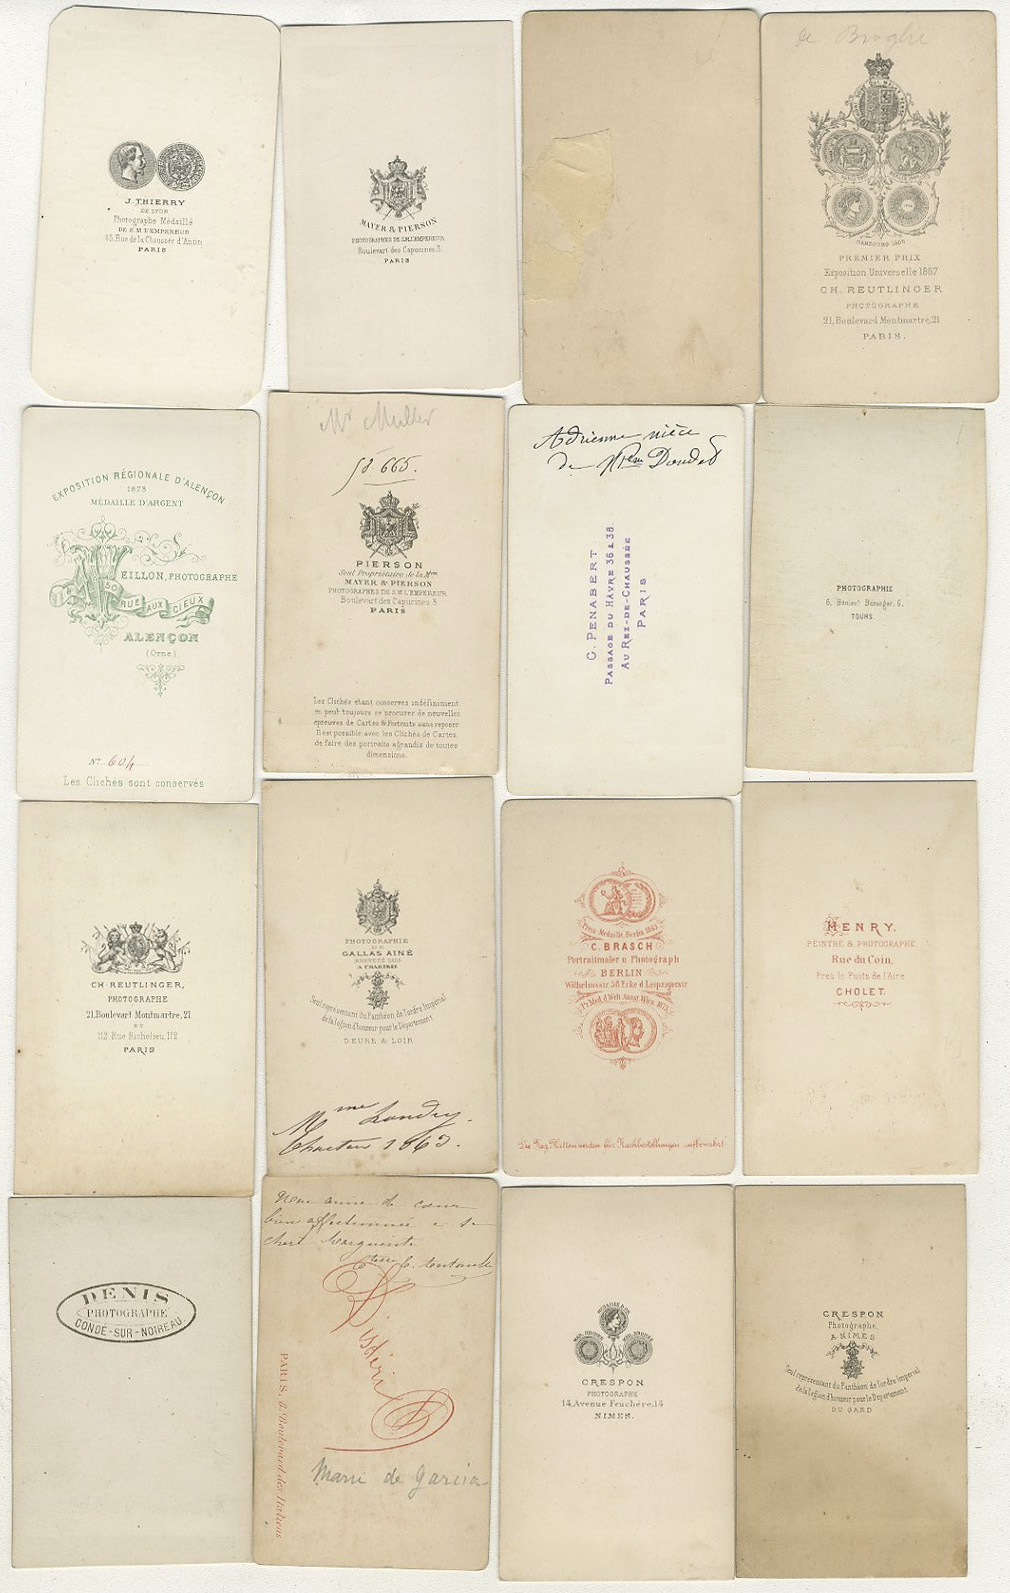 J. THIERRY
DE LYON
Photographe Médaillé
DE S.M. L'EMPEREUR
45, Rue de la Chaussée d'Antin
PARIS
MAYER & PIERSON
PHOTOGRAPHES DE S.M. L'EMPEREUR
Boulevart des Capucines, 3.
PARIS
de Broglie
HAMBOURG 1868
PREMIER PRIX
Exposition Universelle 1867
CH. REUTLINGER
PHOTOGRAPHE
21, Boulevard Montmartre, 21
PARIS.
EXPOSITION RÉGIONALE D'ALENÇON
1873
MÉDAILLE D'ARGENT
VEILLON, PHOTOGRAPHE
50 RUE AUX CIEUX
ALENÇON
(Orne)
N° 604
Les Clichés sont conservés
Mr Muller
58 665.
PIERSON
Seul Propriétaire de la Mon
MAYER & PIERSON
PHOTOGRAPHES DE S.M. L'EMPEREUR
Boulevart des Capucines 3
PARIS
Les Clichés étant conservés indéfiniment
on peut toujours se procurer de nouvelles
épreuves de Cartes & Portraits sans reposer
Il est possible avec les Clichés de Cartes
de faire des portraits agrandis de toutes
dimensions.
Adrienne nièce
de Daudet
G. PENABERT
PASSAGE DU HÂVRE 36 & 38.
AU REZ-DE-CHAUSSÉE
PARIS
PHOTOGRAPHIE
6, Boulevt Béranger, 6.
TOURS.
CH. REUTLINGER,
PHOTOGRAPHE
21, Boulevart Montmartre, 21
ET
112, Rue Richelieu, 112
PARIS
PHOTOGRAPHIE
DE
GALLAS AINÉ
BREVETÉ
A CHARTRES
Seul représentant du Panthéon de l'ordre Impérial
de la légion d'honneur pour le Département
D'EURE & LOIR
Mme Landry.
Chartres 1863.
Preis Medaille Berlin 1865
C. BRASCH
Portraitmaler u. Photograph
BERLIN
Wilhelmsstr. 58 Ecke d. Leipzigerstr
Pr. Med. d. Welt Ausst. Wien 1873.
Die Neg. Platten werden für Nachbestellungen aufbewahrt
HENRY.
PEINTRE & PHOTOGRAPHE.
Rue du Coin,
Près le Puits de l'Aire.
CHOLET.
DENIS
PHOTOGRAPHE
CONDÉ-SUR-NOIREAU.
bien affectionnée
Disdéri
PARIS. 8. Boulevard des Italiens
Marie de Garcia
CRESPON
PHOTOGRAPHE
14, Avenue Feuchère, 14
NIMES.
CRESPON
Photographe,
A NIMES
Seul représentant du Panthéon de l'ordre Impérial
de la légion d'honneur pour le Département
DU GARD